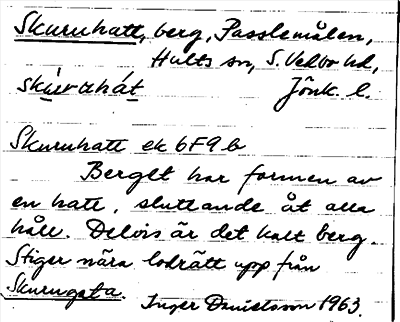 Skuruhatt, berg, Passlemålen,
Hults sn, S. Vedbo hd,
skúruhát Jönk. l.
Skuruhatt ek 6F9b
Berget har formen av
en hatt, sluttande åt alla
håll. Delvis är det kalt berg.
Stiger nära lodrätt upp från
Skurugata. Inger Danielsson 1963.